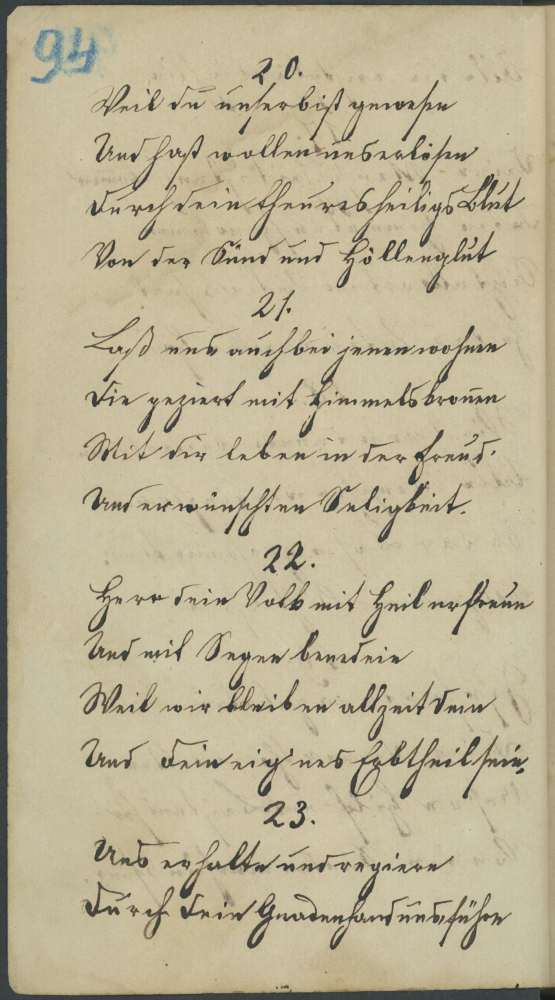 94
20.
Weil du unser bist gewesen
Und hast wollen uns erlösen
Durch dein theures heiligs Blut
Von der Sünd und Höllenglut
21.
Laß uns auch bei jenen wohnen
Die geziert mit Himmelskronen
Mit dir leben in der Freud.
Und erwünschten Seligkeit.
22.
Herr dein Volk mit Heil erfreue
Und mit Segen benedeie
Weil wir bleiben allzeit dein
Und dein eig'nes Erbtheil sein,
23.
Uns erhalte und regiere
Durch dein Gnadenhand uns führe